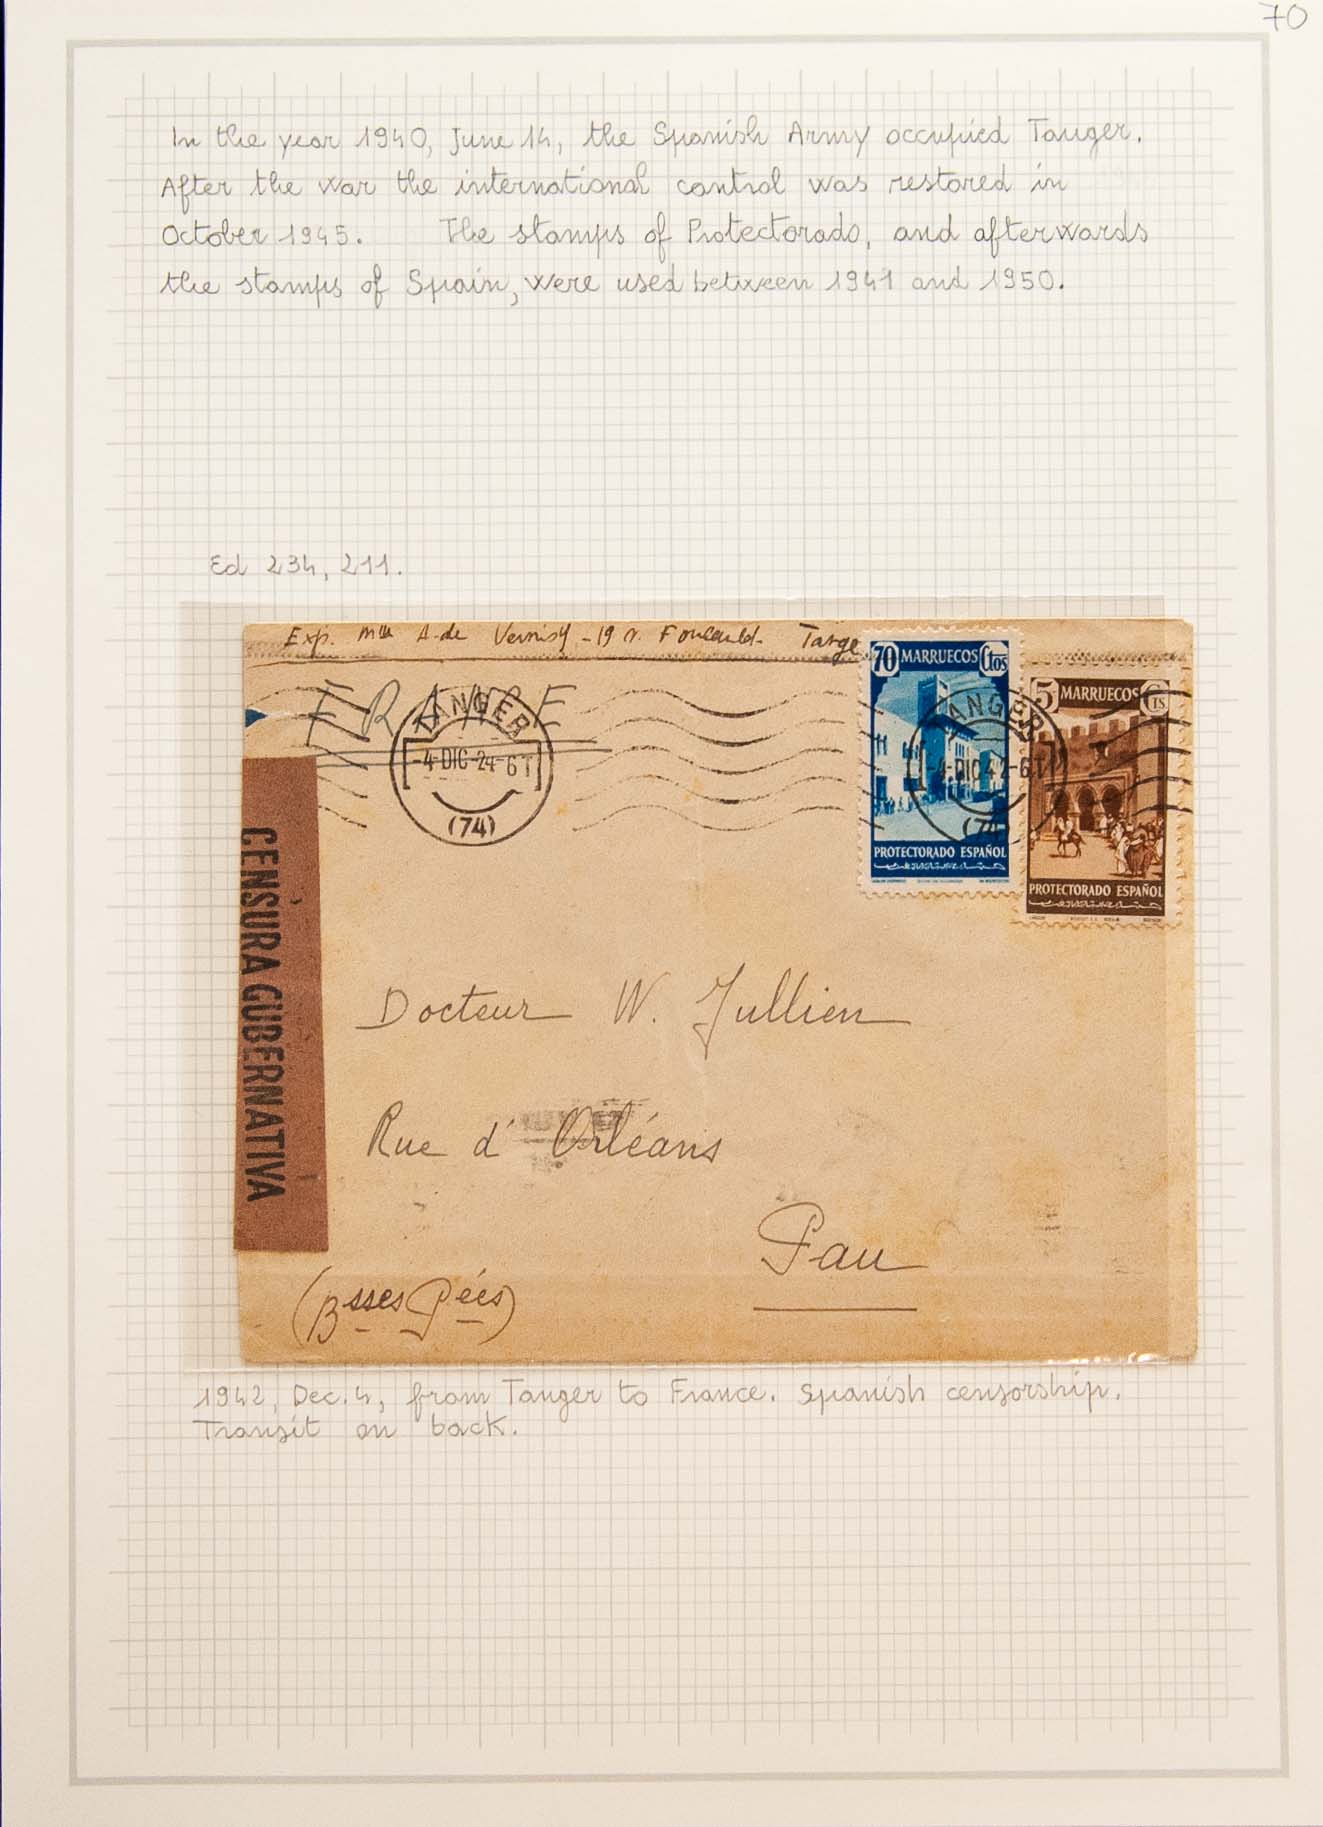 70
In the year 1940, June 14, the Spanish Army occupied Tanger.
After the war the international control was restored in
October 1945. The stamps of Protectorado, and afterwards
the stamps of Spain, were used between 1941 and 1950.
Ed 234, 211.
Exp. Mlle A. de Vernisy - 19 r. Foucauld - Tange
FRANCE
TANGER
-4-DIC-24-6T
(74)
70 MARRUECOS Ctos
PROTECTORADO ESPAÑOL
5 MARRUECOS CTS
PROTECTORADO ESPAÑOL
TANGER
-4-DIC 42-6T
(74)
CENSURA GUBERNATIVA
Docteur W. Jullien
Rue d'Orléans
Pau
(Bsses Pées)
1942, Dec. 4, from Tanger to France. Spanish censorship.
Transit on back.